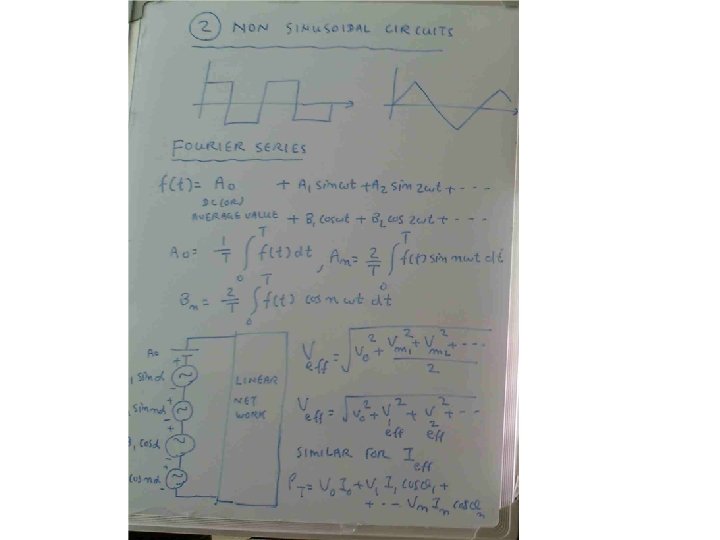 2 NON SINUSOIDAL CIRCUITS
FOURIER SERIES
f(t) = A0 + A1 sin ωt + A2 sin 2ωt + - - -
DC (OR)
AVERAGE VALUE + B1 cos ωt + B2 cos 2ωt + - - -
A0 = 1/T ∫0^T f(t) dt, An = 2/T ∫0^T f(t) sin nωt dt
Bn = 2/T ∫0^T f(t) cos nωt dt
A0
+
sin α
+
-
sin nα
+
-
cos α
+
-
cos nα
-
LINEAR
NET
WORK
Veff = √(V0² + (Vm1² + Vm2² + - - -)/2)
Veff = √(V0² + V1eff² + V2eff² + - -
SIMILAR FOR Ieff
PT = V0 I0 + V1 I1 cos θ1 +
+ - - Vn In cos θn